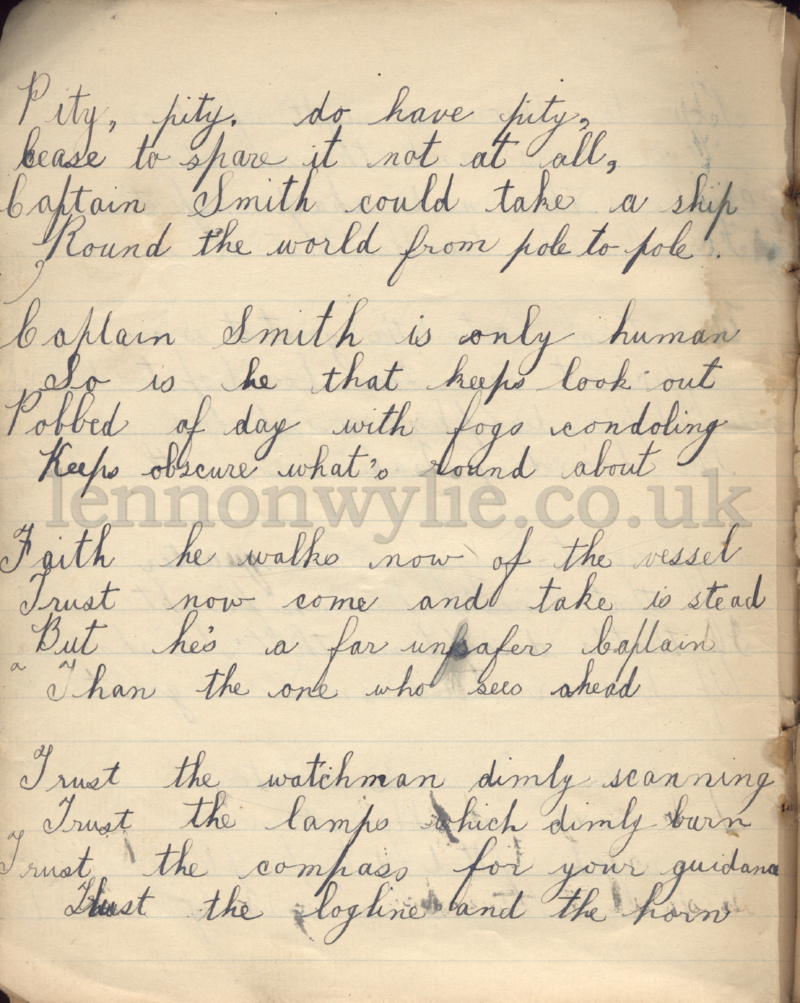 Pity, pity. do have pity,
Cease to spare it not at all,
Captain Smith could take a ship
Round the world from pole to pole.
Captain Smith is only human
So is he that keeps look out
Robbed of day with fogs condoling
Keeps obscure what's round about
lennonwylie.co.uk
Faith he walks now of the vessel
Trust now come and take is stead
But he's a far unsafer Captain
Than the one who sees ahead
Trust the watchman dimly scanning
Trust the lamps which dimly burn
Trust the compass for your guidance
Trust the logline and the horn